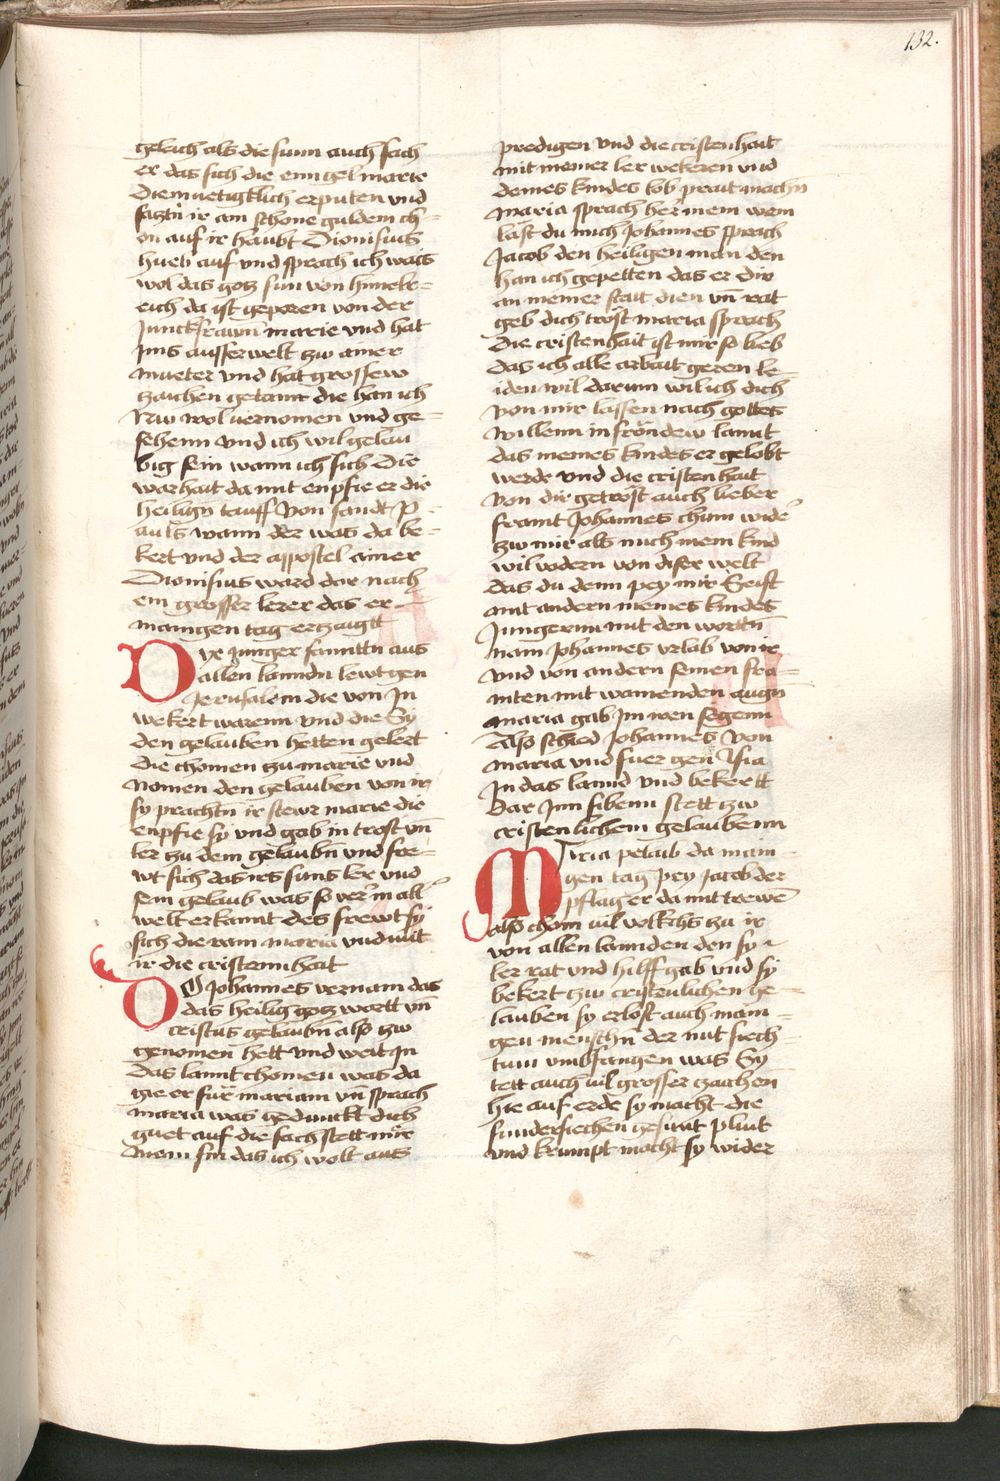 132.
geleich als die sunn auch sach
er das sich die enngel marie
Diemuetigklich erputen vnd
saztn ir ain schone guldein ch=
on auf ir haubt Dionisius
hueb auf vnd sprach ich wais
wol das gotz sun von himelr=
eich da ist geporen von der
Junckfrawn marie vnd hat
Ims ausserwelt zw ainer
mueter vnd hat grossew
zaichen getann die han ich
Nw wol vernomen vnd ge=
sehenn vnd ich wil gelau
big sein wann ich sich Die
warhait da mit enpfie er die
heilign tauff von sandt P=
auls wann der was da be=
kert vnd der appostel ainer
Dionisius ward dar nach
ein grosser lerer das er
manigen tag erzaigtt
Dye junger sanntn aus
allen lanndn lewt gen
Jerusalem die von In
wekert warenn vnd die Sy
den gelauben hetten gelert
die chomen zu marie vnd
nomen den gelauben von ir
sy prachtn ir stewr marie die
enpfie sy vnd gab in trost vn̄
ler zu dem gelaubn vnd fre=
wt sich das irs suns ler vnd
sein gelaub was so verr in all
welt erkannt des frewt sy
sich die rain maria vnd mit
ir die cristennhait
DO Johannes vernam das
das heilig gotz wortt vn̄
cristus gelaubn also zw
genomen hett vnd weit In
das lannt chomen was da
gie er für mariam vn̄ sprach
maria was gedunckt dich
guet auf die sach stett mir
mein sin das ich wolt aus
predigen vnd die cristenhait
mit meiner ler wekeren vnd
deines kindes lob prait machn
maria sprach her mein wem
last du mich Johannes sprach
Jacob den heiligen man den
han ich gepetten das er dir
an meiner statt dien vn̄ rat
geb dich trost maria sprach
Die cristenhait ist mir so lieb
das ich alle arbait geren le=
iden wil darum wil ich dich
von mir lassen nach gottes
willenn in frömdew lannt
das meines kindes er gelobt
werde vnd die cristenhait
von dir getrost auch lieber
fraint Johannes chum wider
zw mir als mich mein kind
wil vodern von diser welt
das du denn pey mir Seist
mit andern meines kindes
Jungerinn mit den worttn
nam Johannes vrlab von ir
vnd von andern seinen fra=
inten mit wainenden augn
maria gab Im iren segenn
Also schied Johannes von
maria vnd fuer gen Asia
In das lannd vnd bekertt
Dar Inn sibenn stett zw
cristenlichem gelaubenn
Maria pelaib da main=
gen tag pey Jacob der
pflag er da mit trewen
also chom vil volkchs zu ir
von allen lannden den sy
ler rat vnd hilff gab vnd sy
bekert zw cristenlichen ge=
lauben sy erlost auch main=
gen menschn der mit siech=
tum vmbfangen was Sy
tett auch vil grosser zaichen
hie auf erde sy macht die
sundersiechen gesunt plint
vnd krumpt macht sy wider